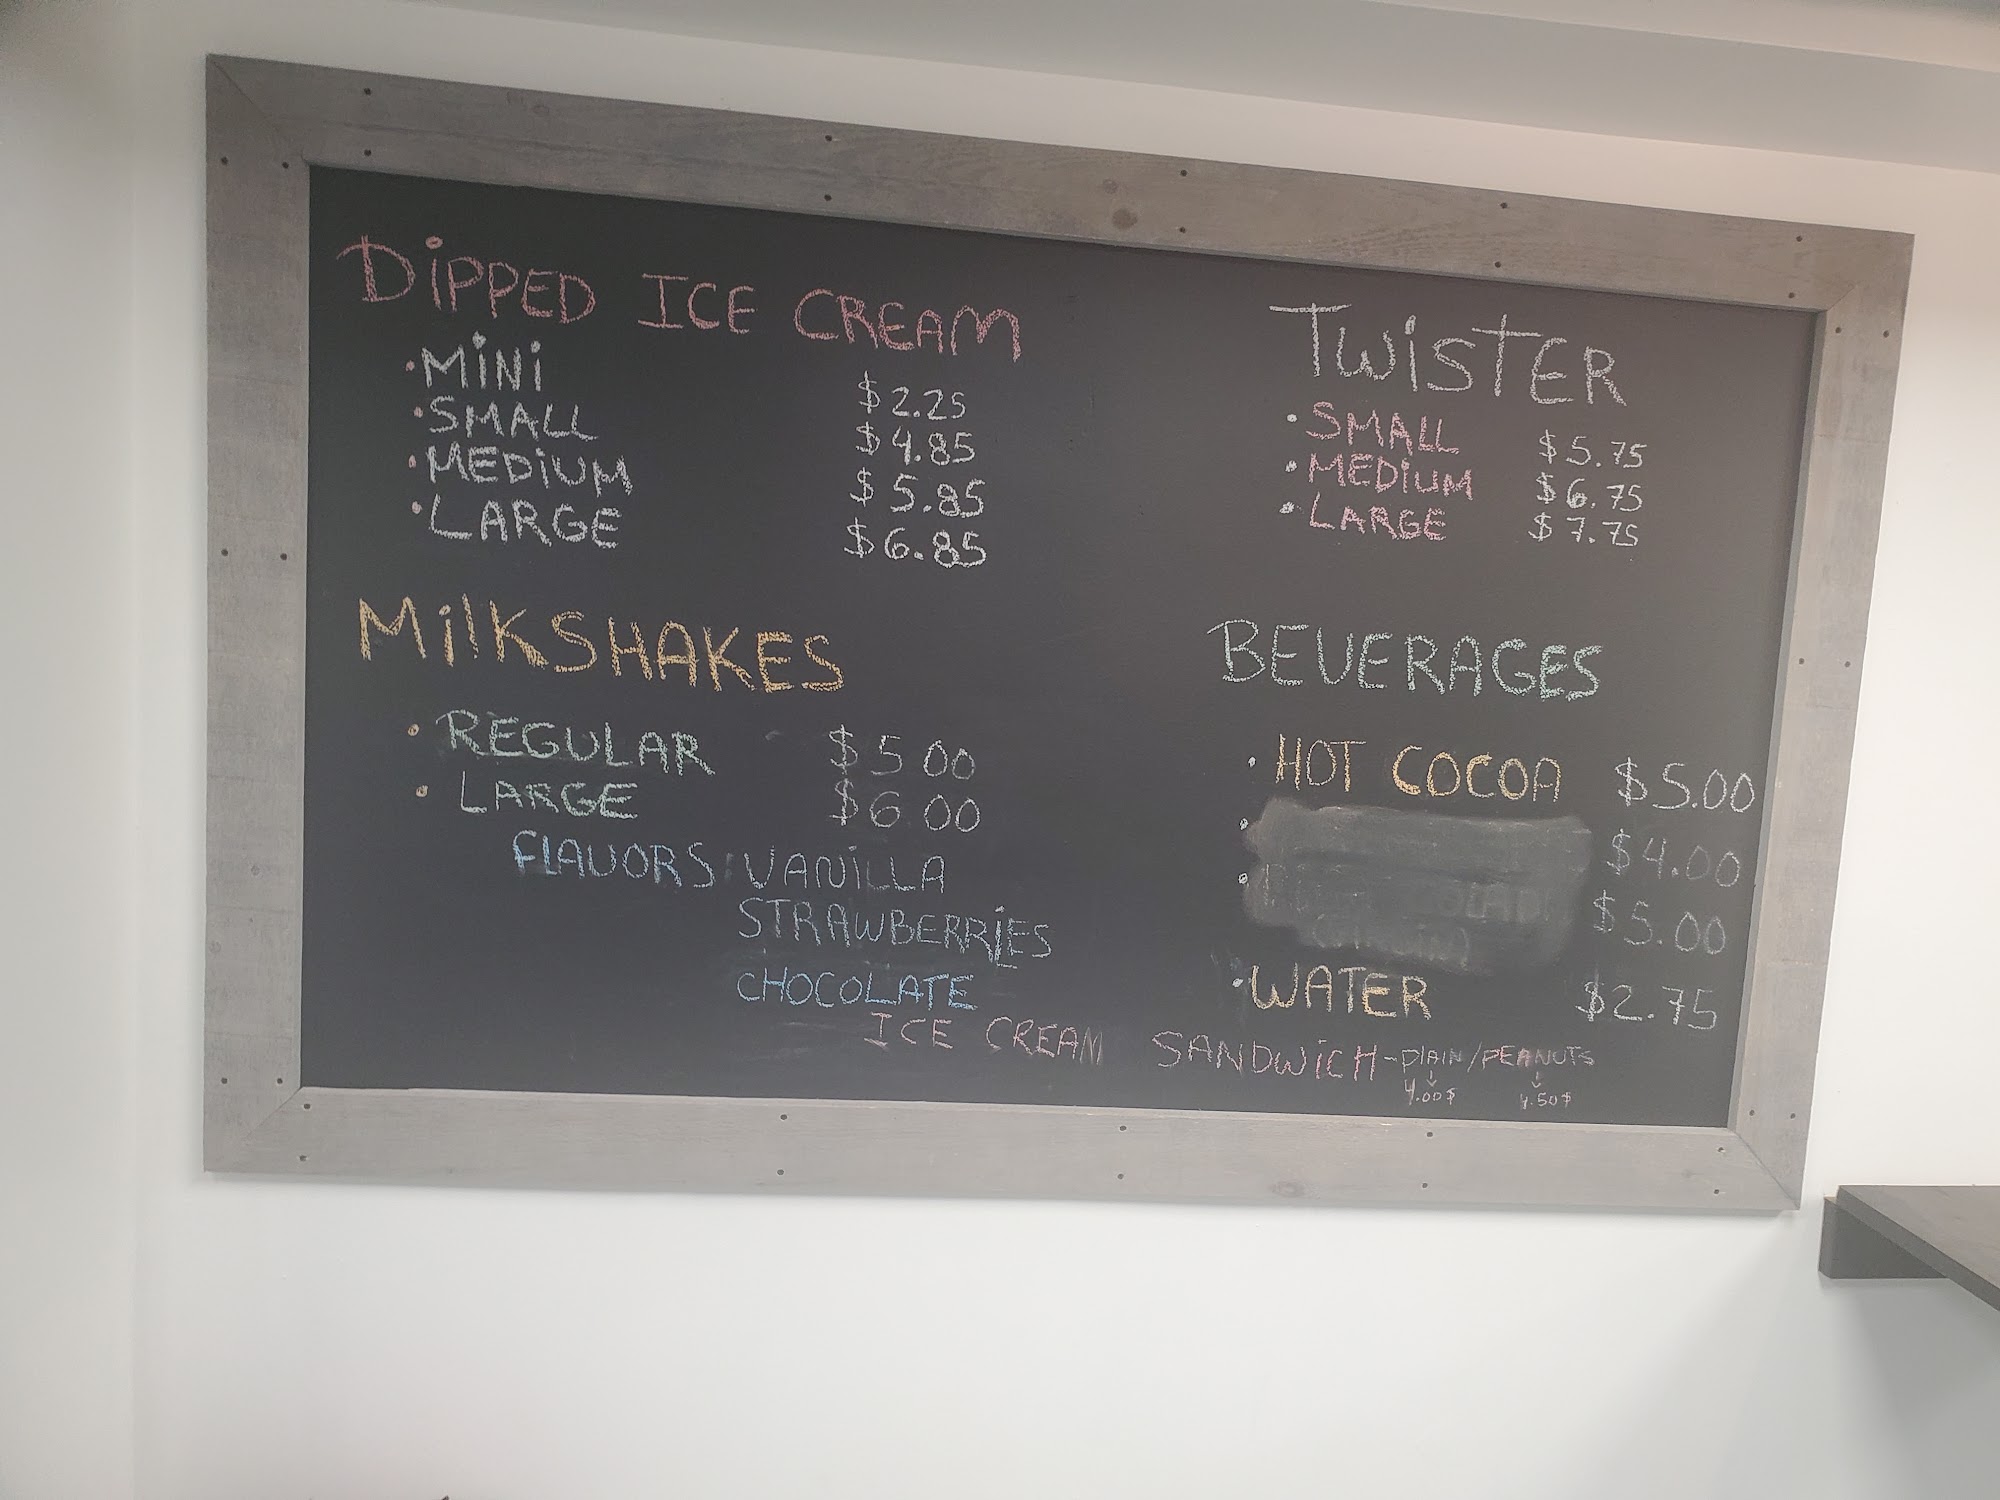 DIPPED ICE CREAM
• MINI $2.25
• SMALL $4.85
• MEDIUM $5.85
• LARGE $6.85
MilKSHAKES
• REGULAR $5.00
• LARGE $6.00
FLAVORS: VANILLA
STRAWBERRIES
CHOCOLATE
TWISTER
• SMALL $5.75
• MEDIUM $6.75
• LARGE $7.75
BEVERAGES
• HOT COCOA $5.00
• $4.00
• $5.00
• WATER $2.75
ICE CREAM SANDWICH - PLAIN / PEANUTS
4.00$ 4.50$